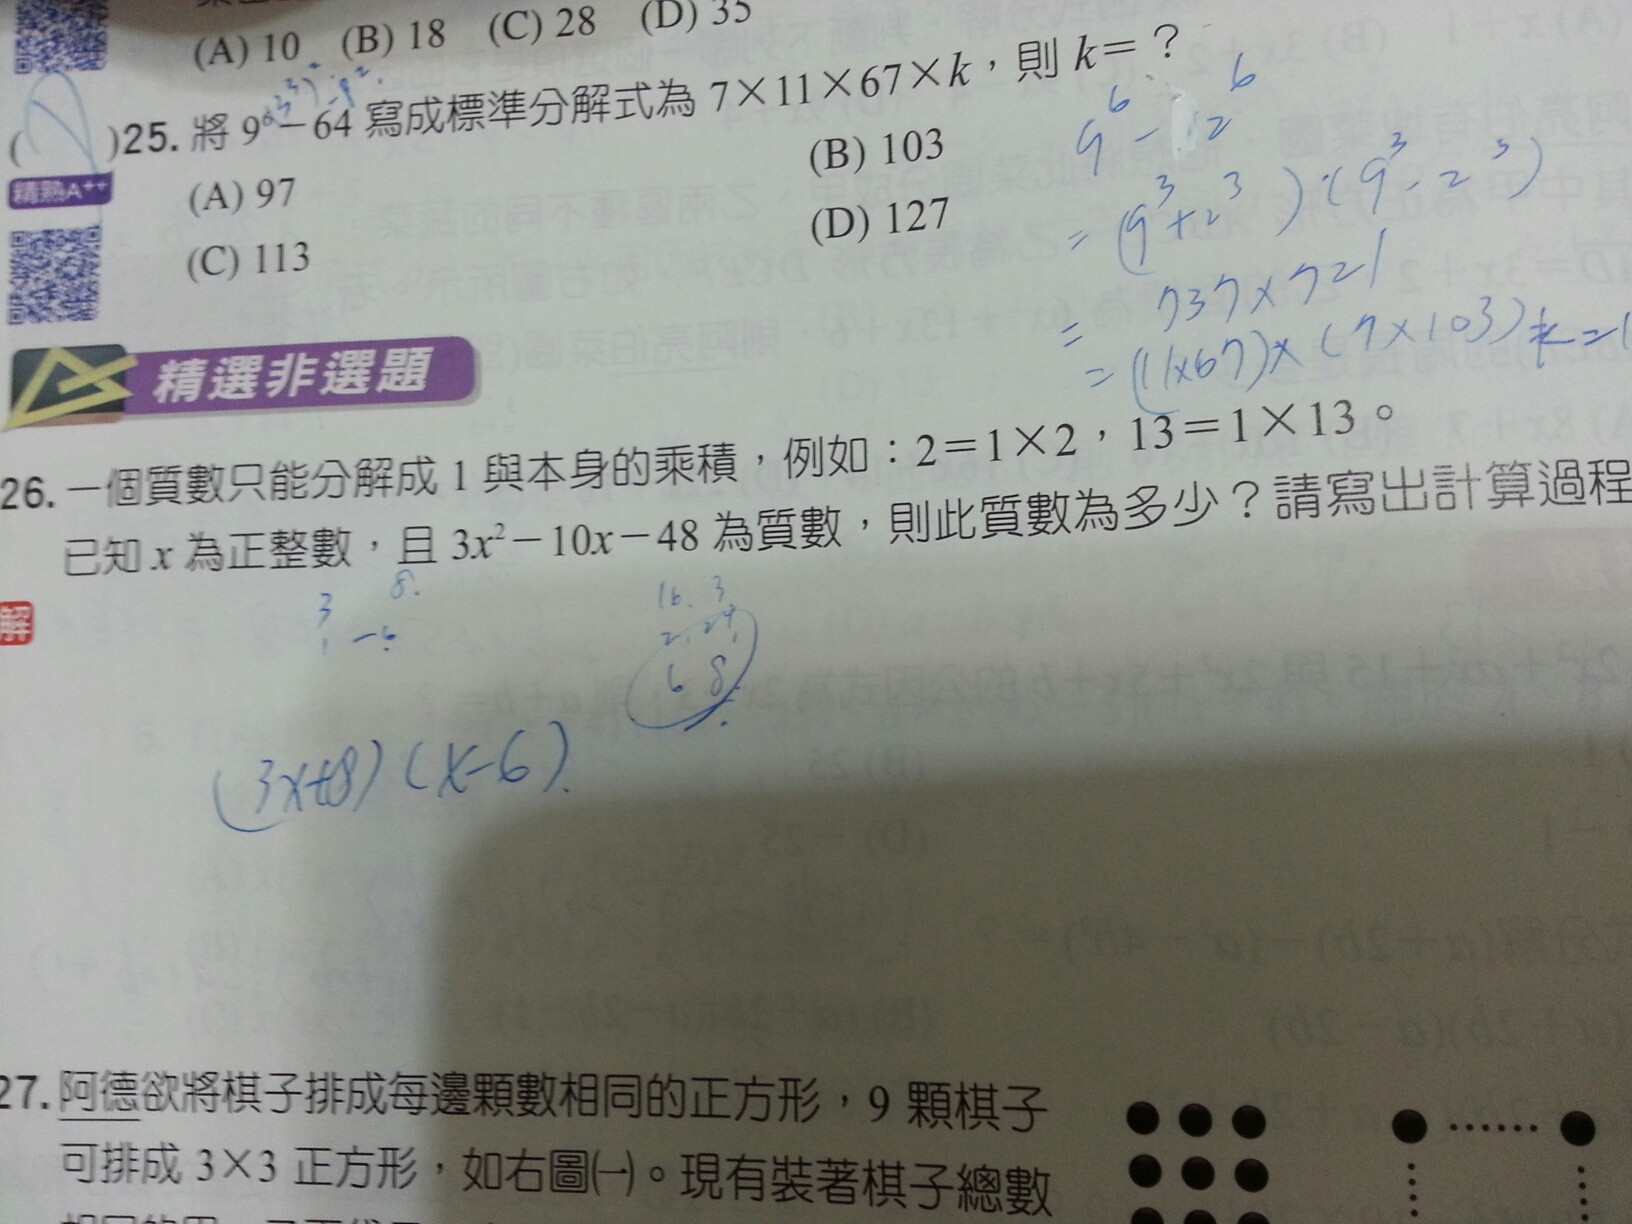 (A) 10 (B) 18 (C) 28 (D) 35
( )25. 將 9⁶－64 寫成標準分解式為 7×11×67×k，則 k＝？
精熟A⁺⁺
(A) 97
(B) 103
(C) 113
(D) 127
9⁶ - 2⁶
= (9³+2³)·(9³-2³)
= 737×721
= (11×67)×(7×103)
精選非選題
26. 一個質數只能分解成 1 與本身的乘積，例如：2＝1×2，13＝1×13。
已知 x 為正整數，且 3x²－10x－48 為質數，則此質數為多少？請寫出計算過程
解
3 8
1 -6
16. 3
2. 24
6 8
(3x+8)(x-6)
27. 阿德欲將棋子排成每邊顆數相同的正方形，9 顆棋子
可排成 3×3 正方形，如右圖㈠。現有裝著棋子總數